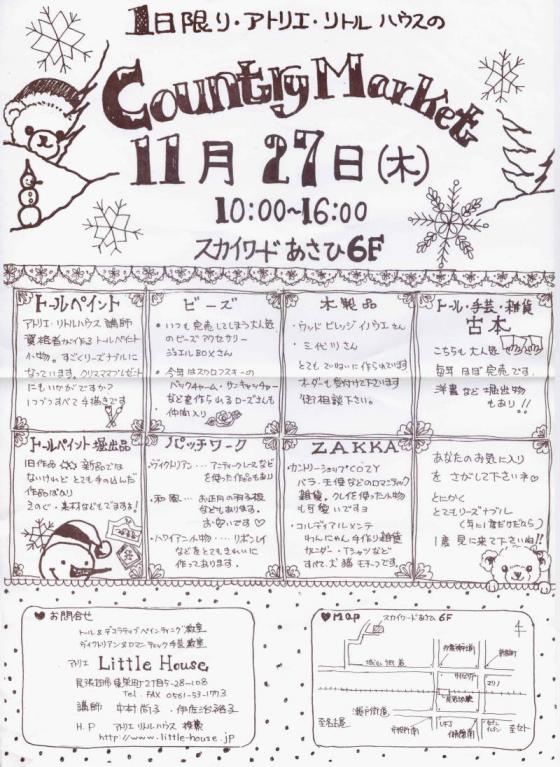 1日限り・アトリエ・リトルハウスの
Country Market
11月27日(木)
10:00~16:00
スカイワードあさひ6F
トールペイント
アトリエ・リトルハウス講師
資格者が作るトールペイント
小物。すごくリーズナブルに
なっています。クリスマスプレゼント
にもいかがですか?
1つ1つすべて手描きです
ビーズ
・いつも完売してしまう大人気
のビーズアクセサリー
ジュエルBOXさん
・今年はスワロフスキーの
バックチャーム・サンキャッチャー
などを作られるローズさんも
仲間入り
木製品
・ウッドビレッジイハウエさん
・三代川さん
とてもていねいに作られています
オーダーも受付けて下さいます
御相談下さい。
トール・手芸・雑貨
古本
こちらも大人気
毎年ほぼ完売です。
洋書など掘出物
もあり!!
トールペイント掘出品
旧作品 新品では
ないけれどとても手の込んだ
作品ばかり
きのぐ・素材などもでますよ!
パッチワーク
・ヴィクトリアン…アンティークレースなど
を使った作品もあり
・和風…お正月の羽子板
などもあります。
お安いです♡
・ハワイアン小物…リボンレイ
などをとてもきれいに
作ってあります。
ZAKKA
・カントリーショップCOZY
バラ・天使などのロマンティック
雑貨。クレイを使った小物
も可愛いですヨ
・コルディアルメンテ
わんにゃん手作り雑貨
カレンダー・Tシャツなど
すべて犬猫モチーフです。
あなたのお気に入り
をさがして下さいネ♡
とにかく
とてもリーズナブル
(年に1度だけだから)
1度見に来て下さいね!!
♥お問合せ
トール&デコラティブペインティング教室
ヴィクトリアン&ロマンティック手芸教室
アトリエ Little House
尾張旭市東栄町2丁目5-28-108
Tel. FAX 0561-53-1773
講師 中村尚子・伊佐治裕子
H.P アトリエリトルハウス 検索
http://www.little-house.jp
♥Map
スカイワードあさひ6F
瀬戸街道
至名古屋
市役所南
UFJ
セブンイレブン
至セト